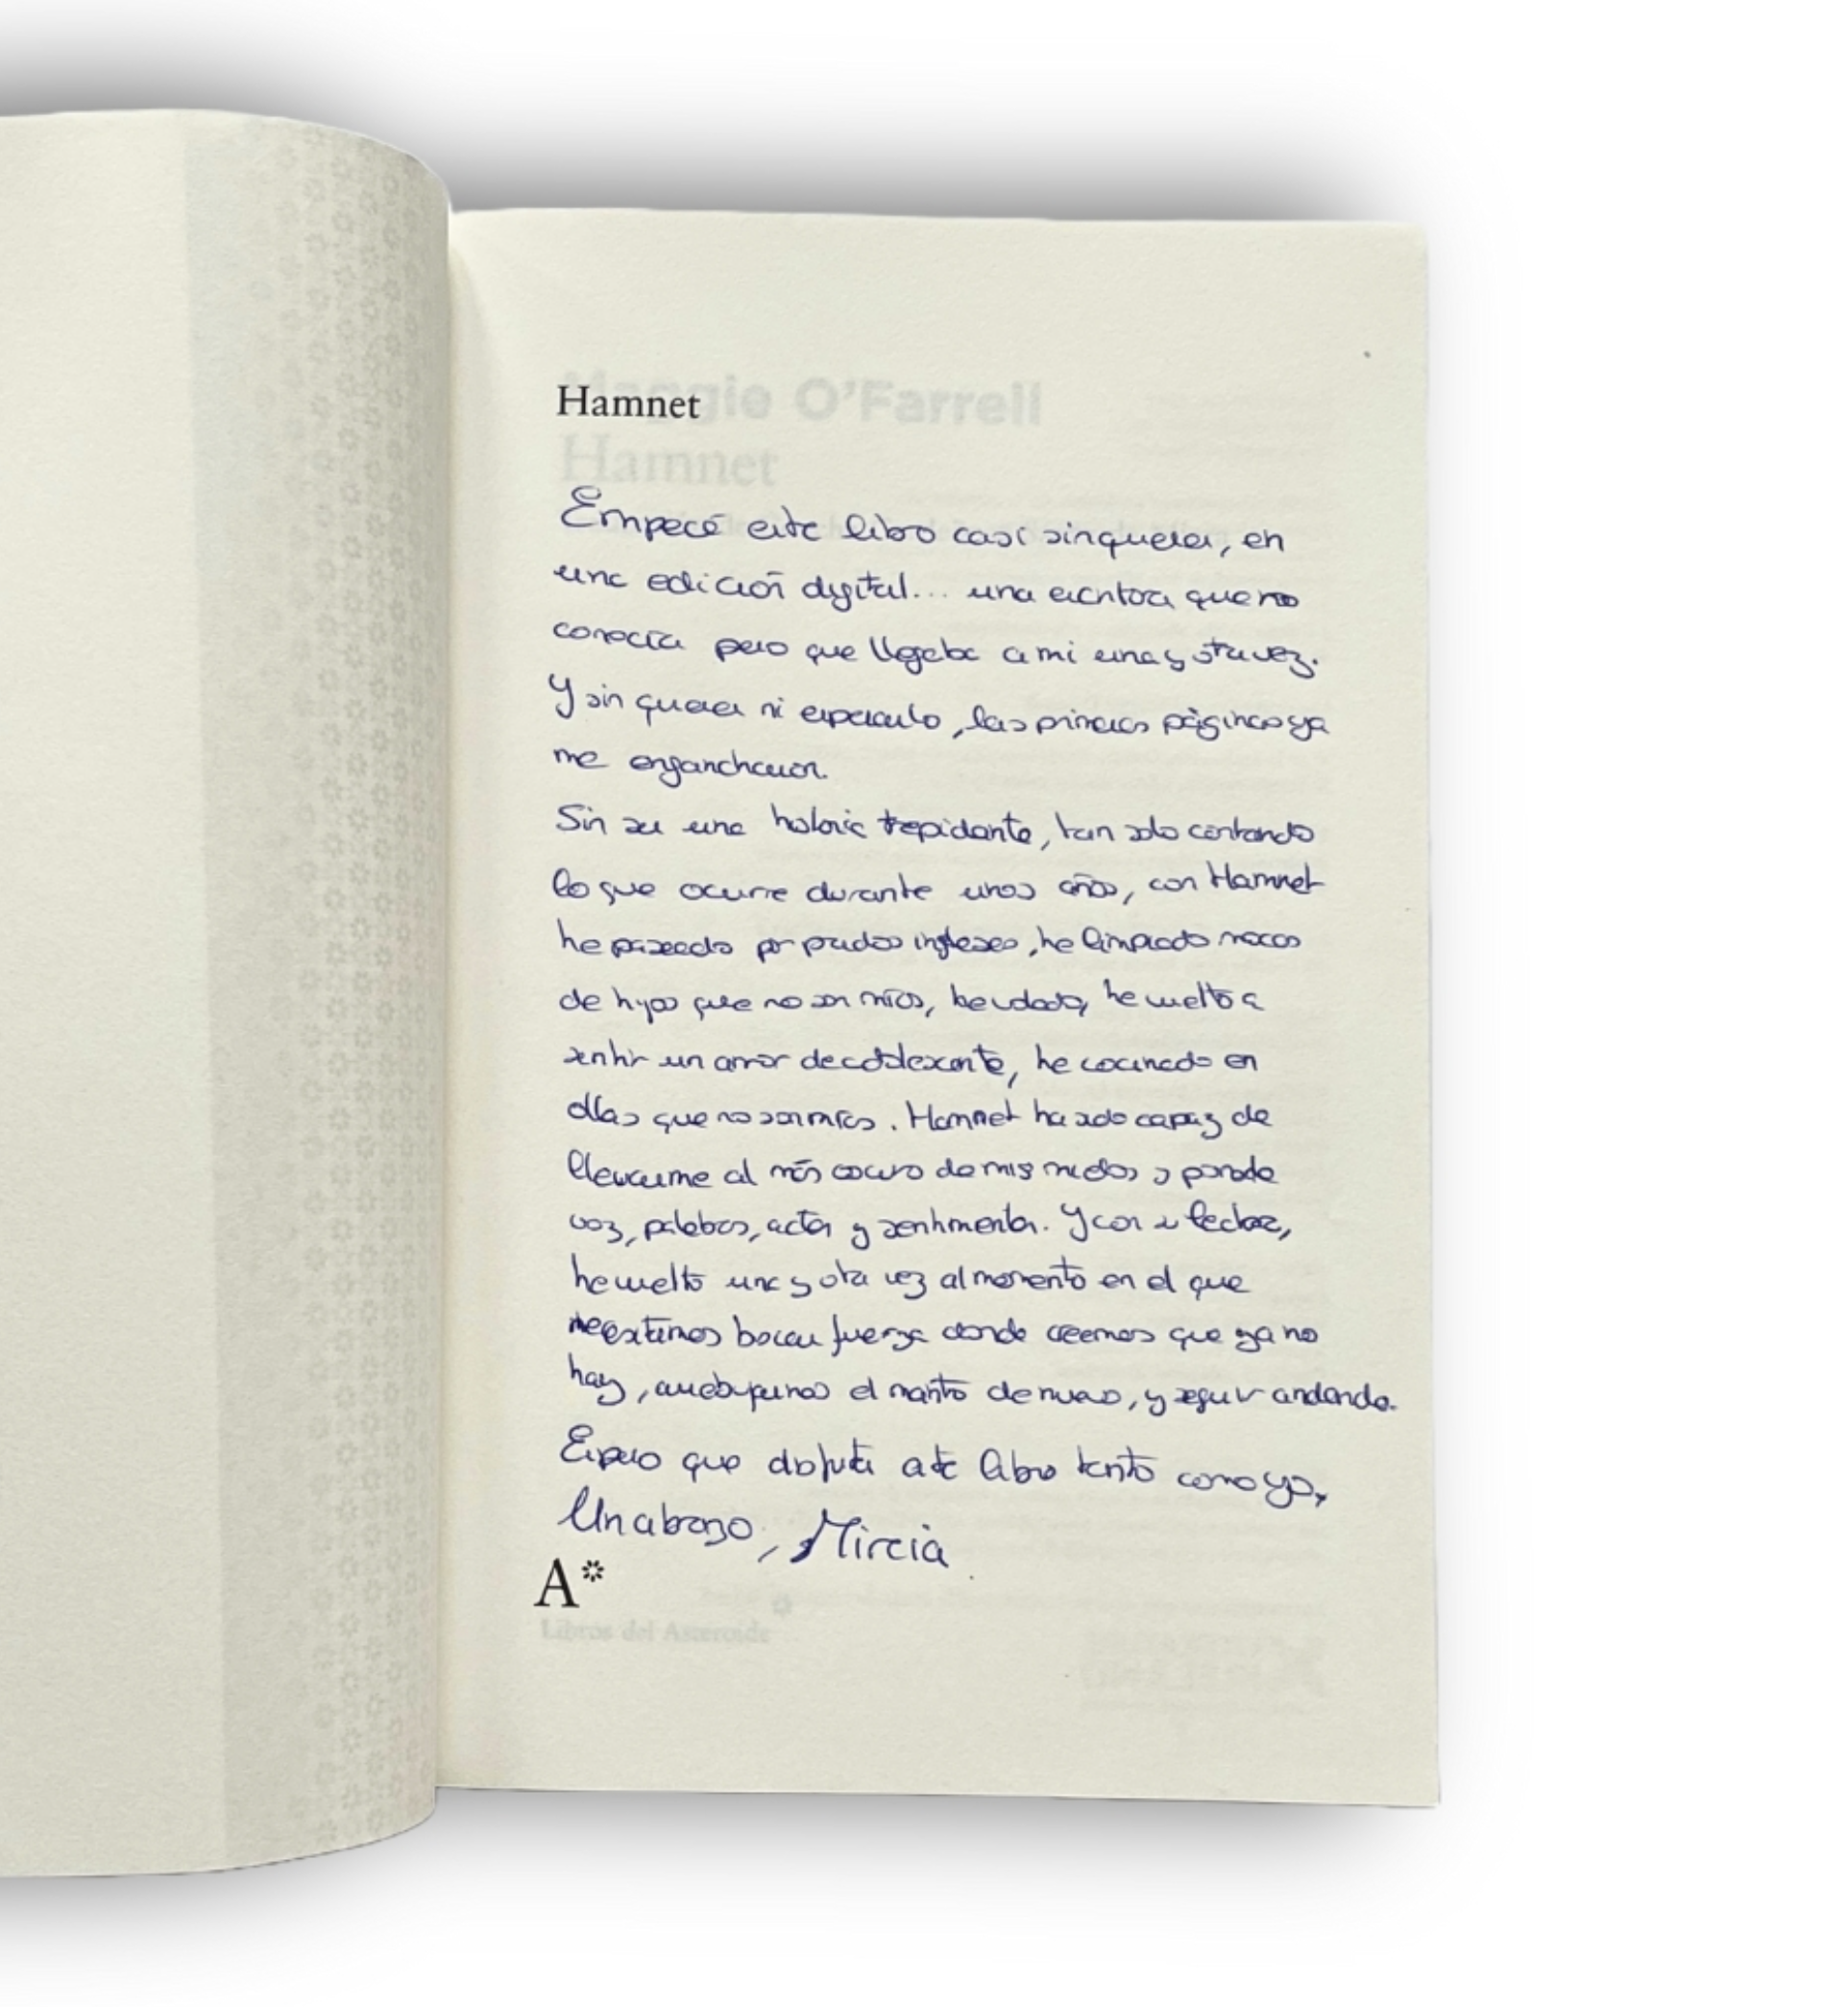 Hamnet
Maggie O'Farrell
Hamnet
Empecé este libro casi sin querer, en
una edición digital... una escritora que no
conocía pero que llegaba a mi una y otra vez.
Y sin querer ni esperarlo, las primeras páginas ya
me engancharon.
Sin ser una historia trepidante, tan solo contando
lo que ocurre durante unos años, con Hamnet
he paseado por prados ingleses, he limpiado mocos
de hijos que no son míos, he, he vuelto a
sentir un amor de adolescente, he cocinado en
ollas que no son mías. Hamnet ha sido capaz de
llevarme al más oscuro de mis miedos y ponerle
voz, palabras, actos y sentimientos. Y con su lectora,
he vuelto una y otra vez al momento en el que
necesitamos buscar fuerza donde creemos que ya no
hay, arrebujarnos el manto de nuevo, y seguir andando.
Espero que disfrutes este libro tanto como yo,
Un abrazo, Mircia
A*
Libros del Asteroide